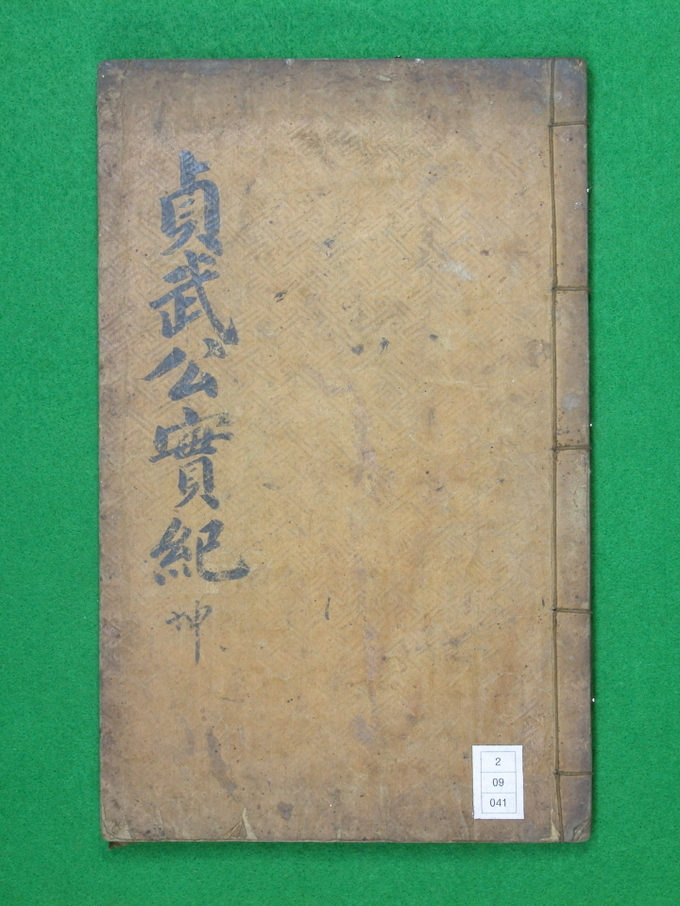 貞武公實紀 坤
2
09
041